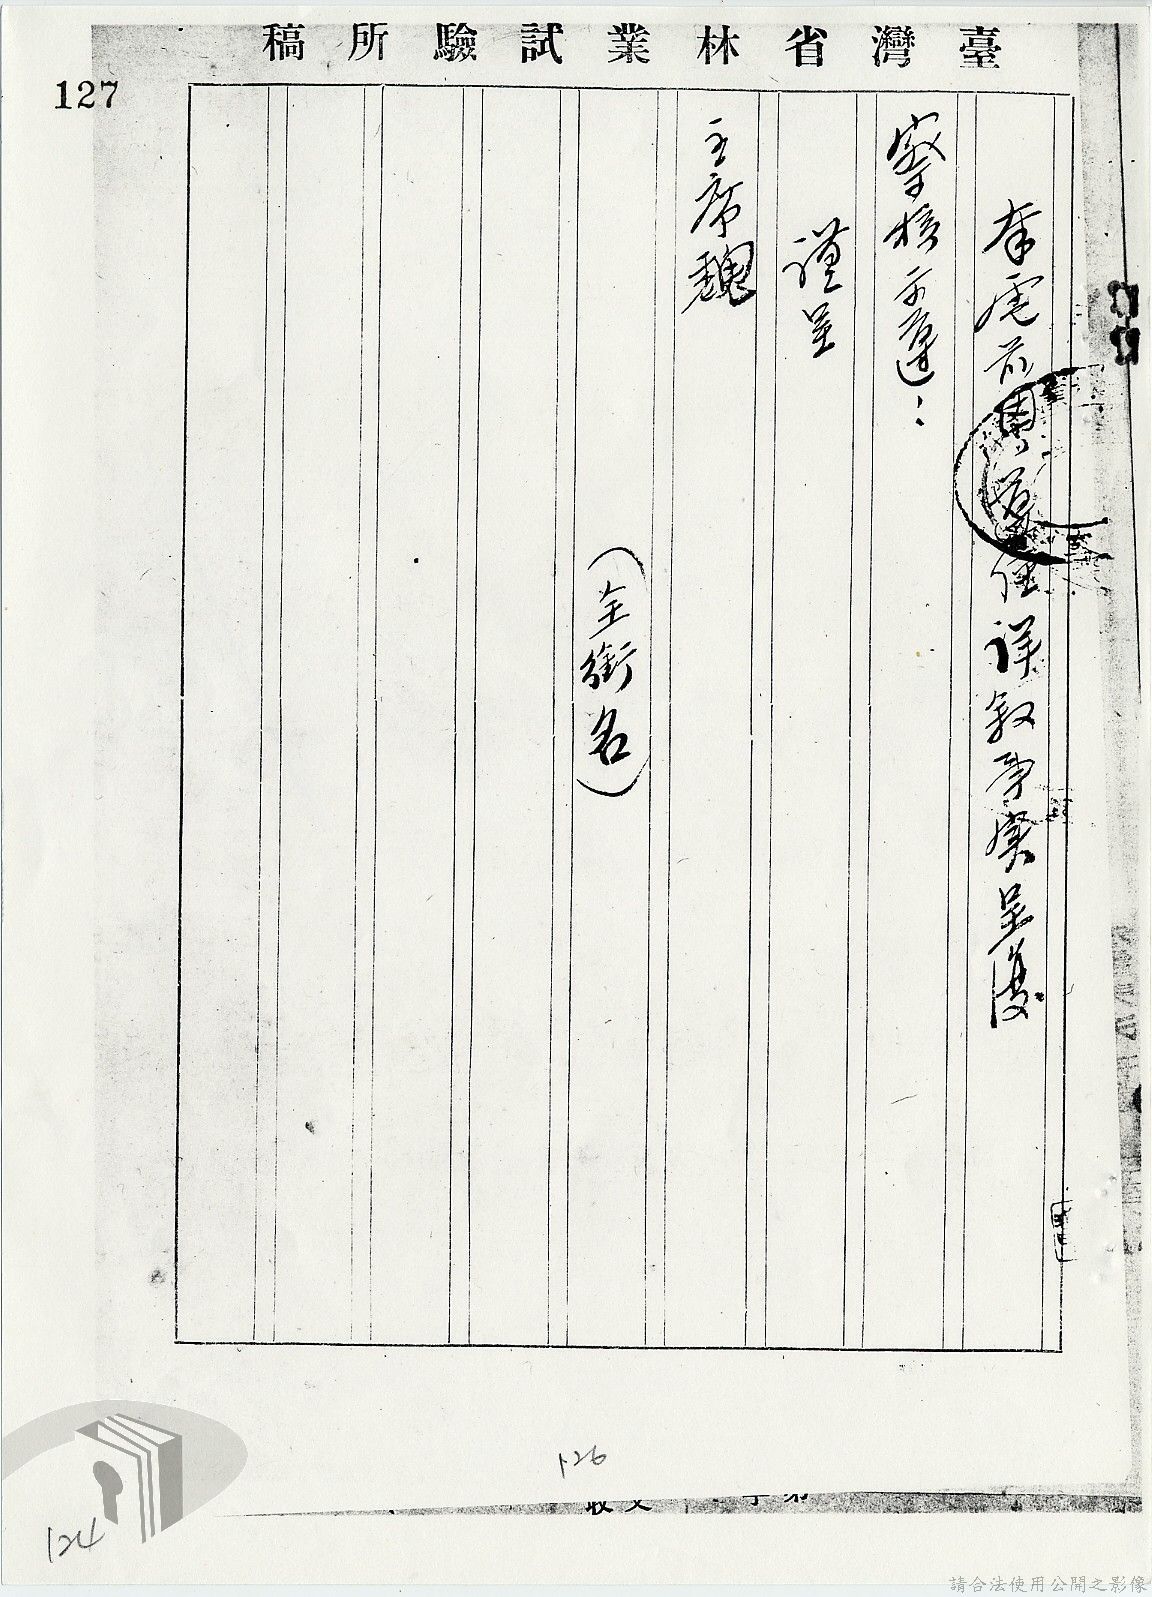 臺灣省林業試驗所稿
127
奉電前因理合詳叙事實呈復
察核示遵：
謹呈
主席魏
（全銜名）
126
124
請合法使用公開之影像